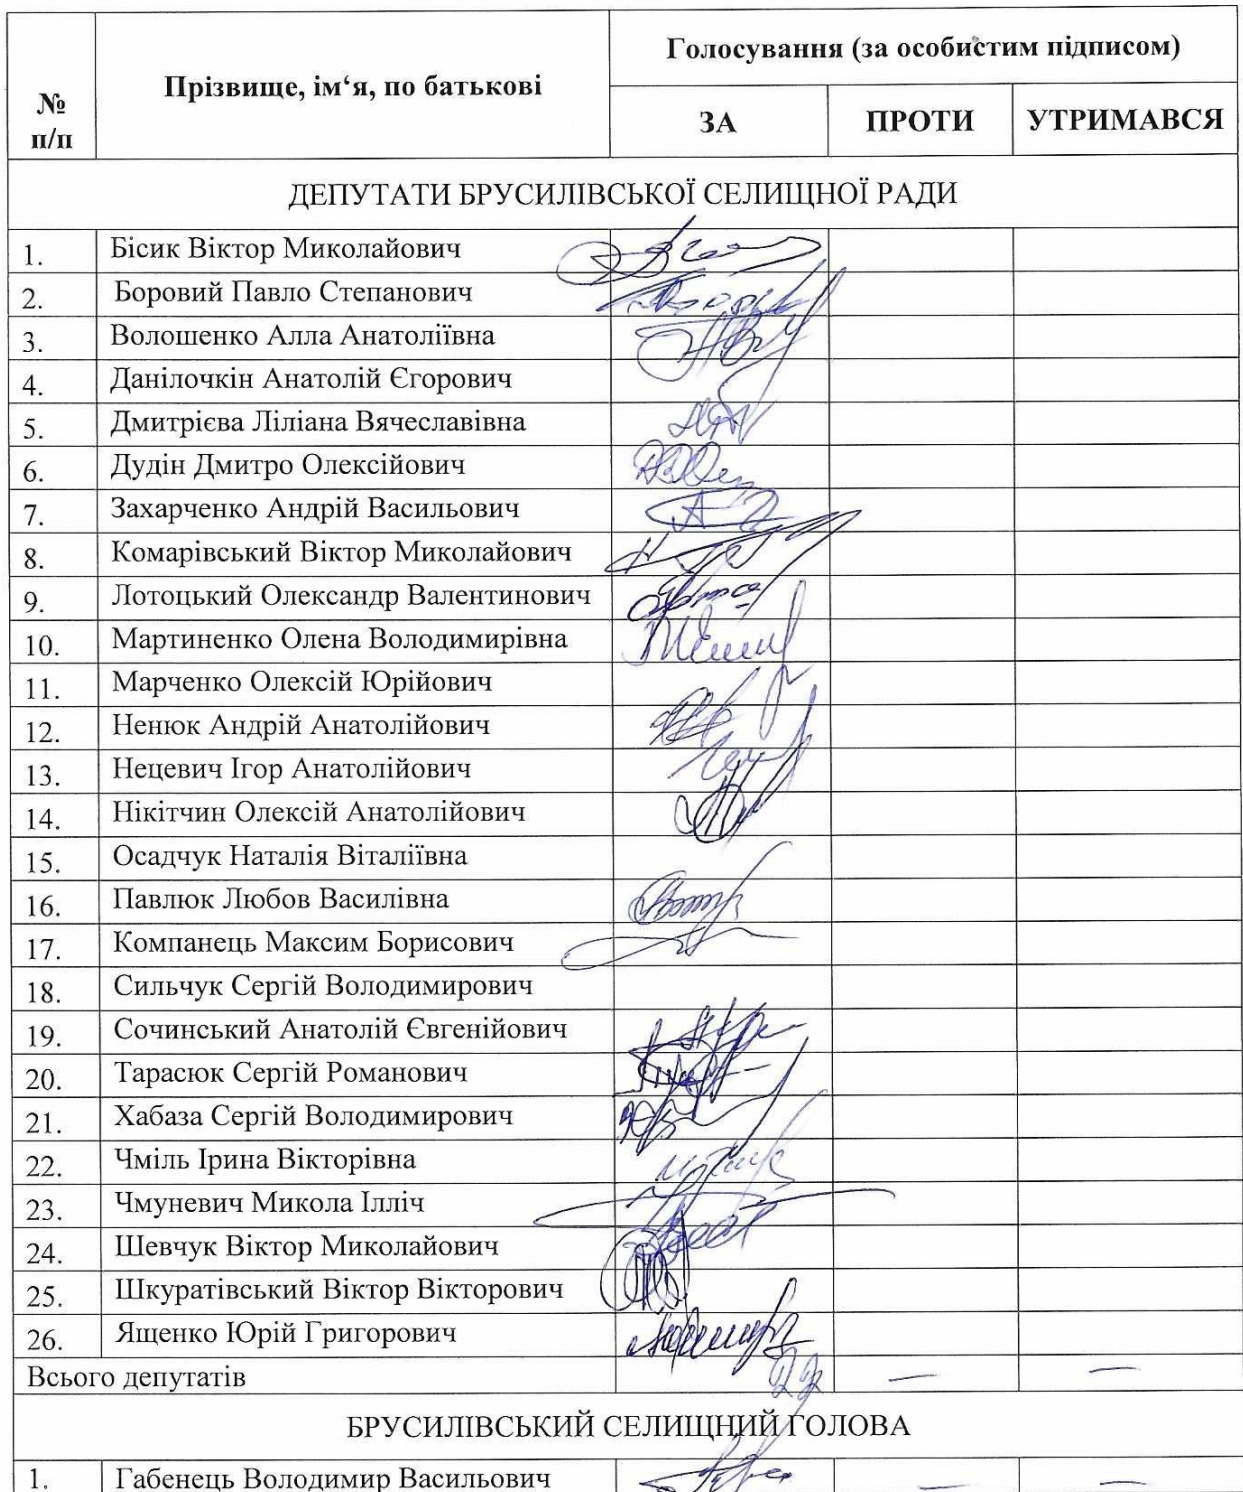 № п/п
Прізвище, ім‘я, по батькові
Голосування (за особистим підписом)
ЗА ПРОТИ УТРИМАВСЯ
ДЕПУТАТИ БРУСИЛІВСЬКОЇ СЕЛИЩНОЇ РАДИ
1. Бісик Віктор Миколайович
2. Боровий Павло Степанович
3. Волошенко Алла Анатоліївна
4. Данілочкін Анатолій Єгорович
5. Дмитрієва Ліліана Вячеславівна
6. Дудін Дмитро Олексійович
7. Захарченко Андрій Васильович
8. Комарівський Віктор Миколайович
9. Лотоцький Олександр Валентинович
10. Мартиненко Олена Володимирівна
11. Марченко Олексій Юрійович
12. Ненюк Андрій Анатолійович
13. Нецевич Ігор Анатолійович
14. Нікітчин Олексій Анатолійович
15. Осадчук Наталія Віталіївна
16. Павлюк Любов Василівна
17. Компанець Максим Борисович
18. Сильчук Сергій Володимирович
19. Сочинський Анатолій Євгенійович
20. Тарасюк Сергій Романович
21. Хабаза Сергій Володимирович
22. Чміль Ірина Вікторівна
23. Чмуневич Микола Ілліч
24. Шевчук Віктор Миколайович
25. Шкуратівський Віктор Вікторович
26. Ященко Юрій Григорович
Всього депутатів — —
БРУСИЛІВСЬКИЙ СЕЛИЩНИЙ ГОЛОВА
1. Габенець Володимир Васильович — —